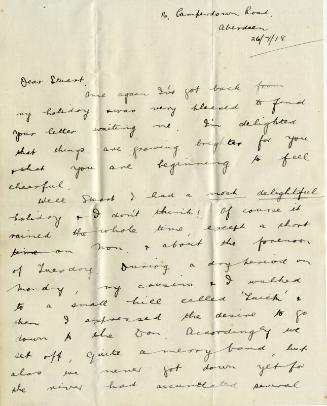 16, Camperdown Road,
Aberdeen
26/7/18
Dear Stuart,
Once again I've got back from
my holiday & was very pleased to find
your letter waiting me. I'm delighted
that things are growing brighter for you
& that you are beginning to feel
cheerful.
Well Stuart I had a most delightful
holiday & I don't think! Of course it
rained the whole time, except a short
time on Mon. & about the forenoon
of Tuesday. During a dry period on
Monday, my cousins & I walked
to a small hill called &
then I expressed the desire to go
down to the Don. Accordingly we
set off, quite a merry band, but
alas we never got down yet for
the river had accumulated several